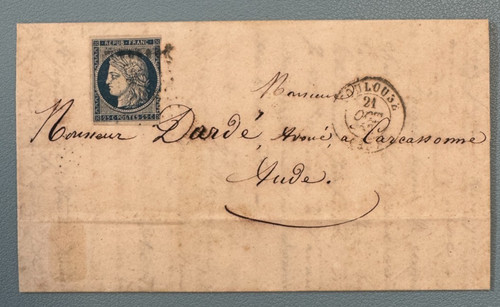 REPUB. FRANC.
25 C. POSTES 25 C.
TOULOUSE
21
OCT.
Monsieur
Monsieur Dardé, Avoué, à Carcassonne
Aude.